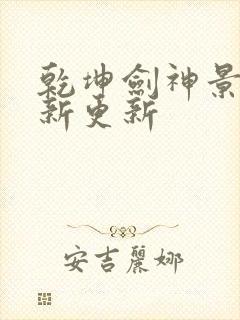 乾坤劍神景
新更新
安吉麗娜